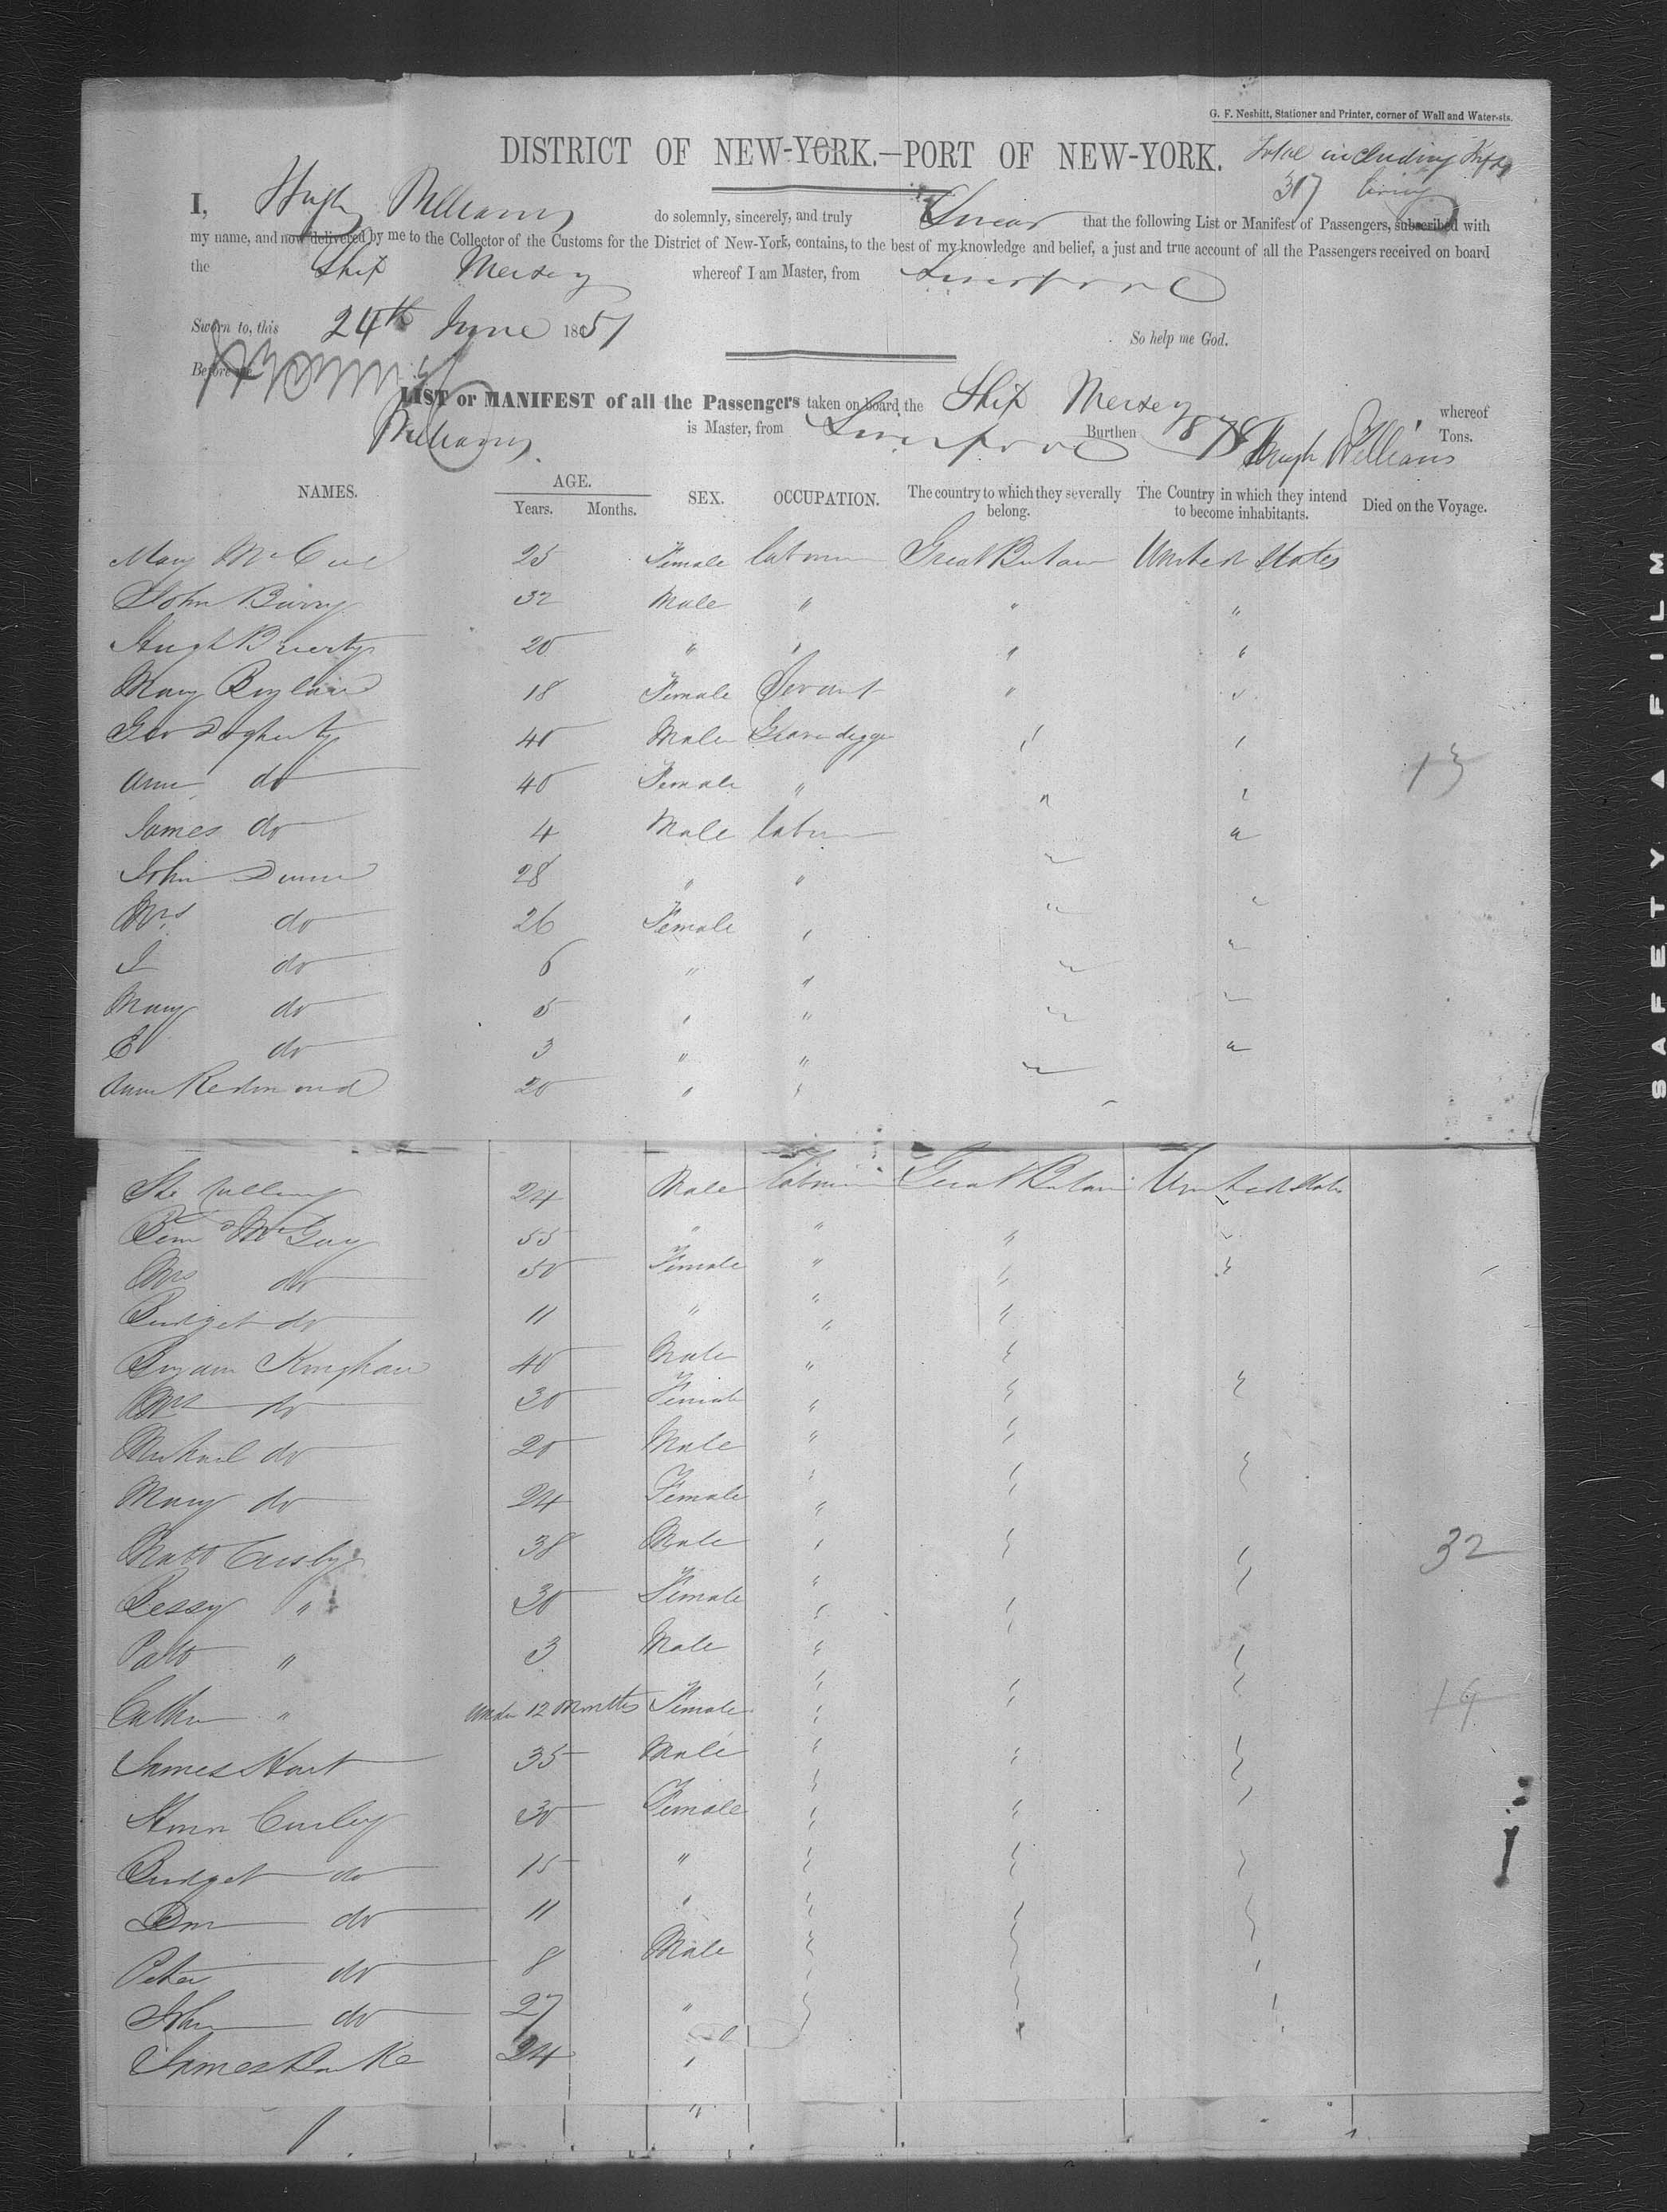 G. F. Nesbitt, Stationer and Printer, corner of Wall and Water-sts.
DISTRICT OF NEW-YORK.—PORT OF NEW-YORK. Total including
317 living
I, Hugh Williams do solemnly, sincerely, and truly Swear that the following List or Manifest of Passengers, subscribed with
my name, and now delivered by me to the Collector of the Customs for the District of New-York, contains, to the best of my knowledge and belief, a just and true account of all the Passengers received on board
the Ship Mersey whereof I am Master, from Liverpool
Sworn to, this 24th June 1851 So help me God.
Before me
LIST or MANIFEST of all the Passengers taken on board the Ship Mersey whereof
Williams is Master, from Liverpool Burthen Tons.
Hugh Williams
NAMES. AGE. Years. Months. SEX. OCCUPATION. The country to which they severally belong. The Country in which they intend to become inhabitants. Died on the Voyage.
Mary McCue 25 Female labourer Great Britain United States
John Barry 32 Male " " "
Hugh 20 " " " "
Mary Boylan 18 Female Servant " "
Geo Dogherty 40 Male Gravedigger " "
Ann do 40 Female " " "
13
James do 4 Male labour " "
John Dunn 28 " "
Mrs do 26 Female " " "
J do 6 " " " "
Mary do 5 " " " "
E do 3 " " " "
Ann Redmond 20 " " " "
24 Male labour Great Britain United States
McGuy 55 " " " "
Mrs do 50 Female " " "
Bridget do 11 " " "
Bryan 40 Male " "
Mrs do 30 Female " " "
Michael do 20 Male " "
Mary do 24 Female " " "
Matt 38 Male " " "
32
Bessy " 30 Female " " "
Patt " 3 Male " " "
Cathn " under 12 Months Female " " "
19
James Hart 35 Male " " "
Ann Curley 30 Female " " "
Bridget do 15 " " " "
do 11 " " " "
Peter do 8 Male " " "
John do 27 " " " "
James Burke 24 "
"
SAFETY A FILM